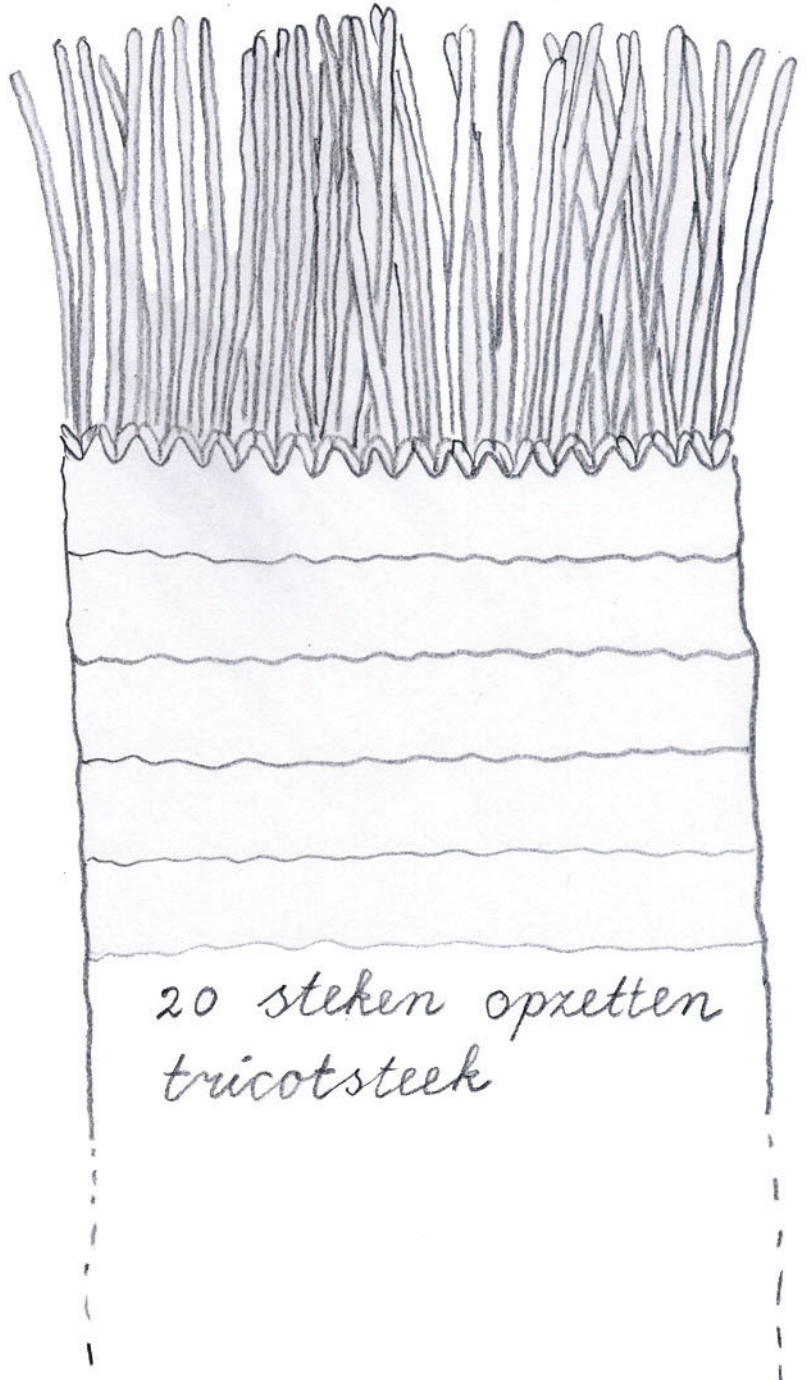 20 steken opzetten
tricotsteek